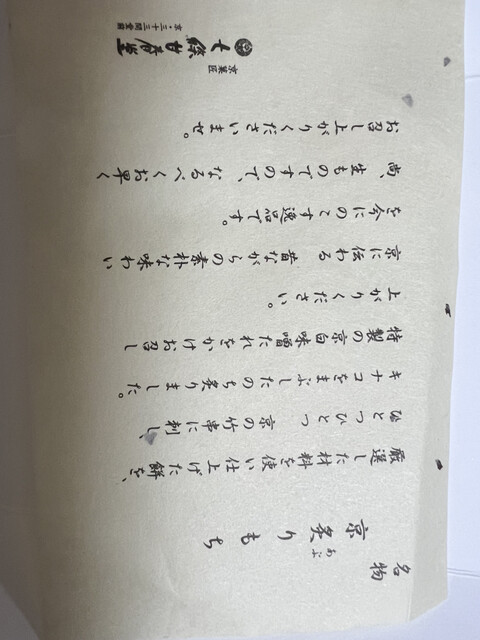 名物
京炙りもち
あぶ
厳選した材料を使い仕上げた餅を、
ひとつひとつ京の竹串に刺し、
キナコをまぶしたのち炙りました。
特製の京白味噌だれをかけお召し
上がりください。
京に伝わる昔ながらの素朴な味わい
を今にのこす逸品です。
尚、生ものですので、なるべくお早く
お召し上がりくださいませ。
京菓匠
七條甘春堂
京・三十三間堂前